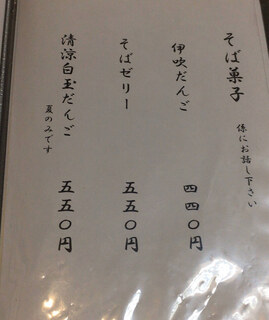 そば菓子
係にお話し下さい
伊吹だんご 四四〇円
そばゼリー 五五〇円
清涼白玉だんご 五五〇円
夏のみです